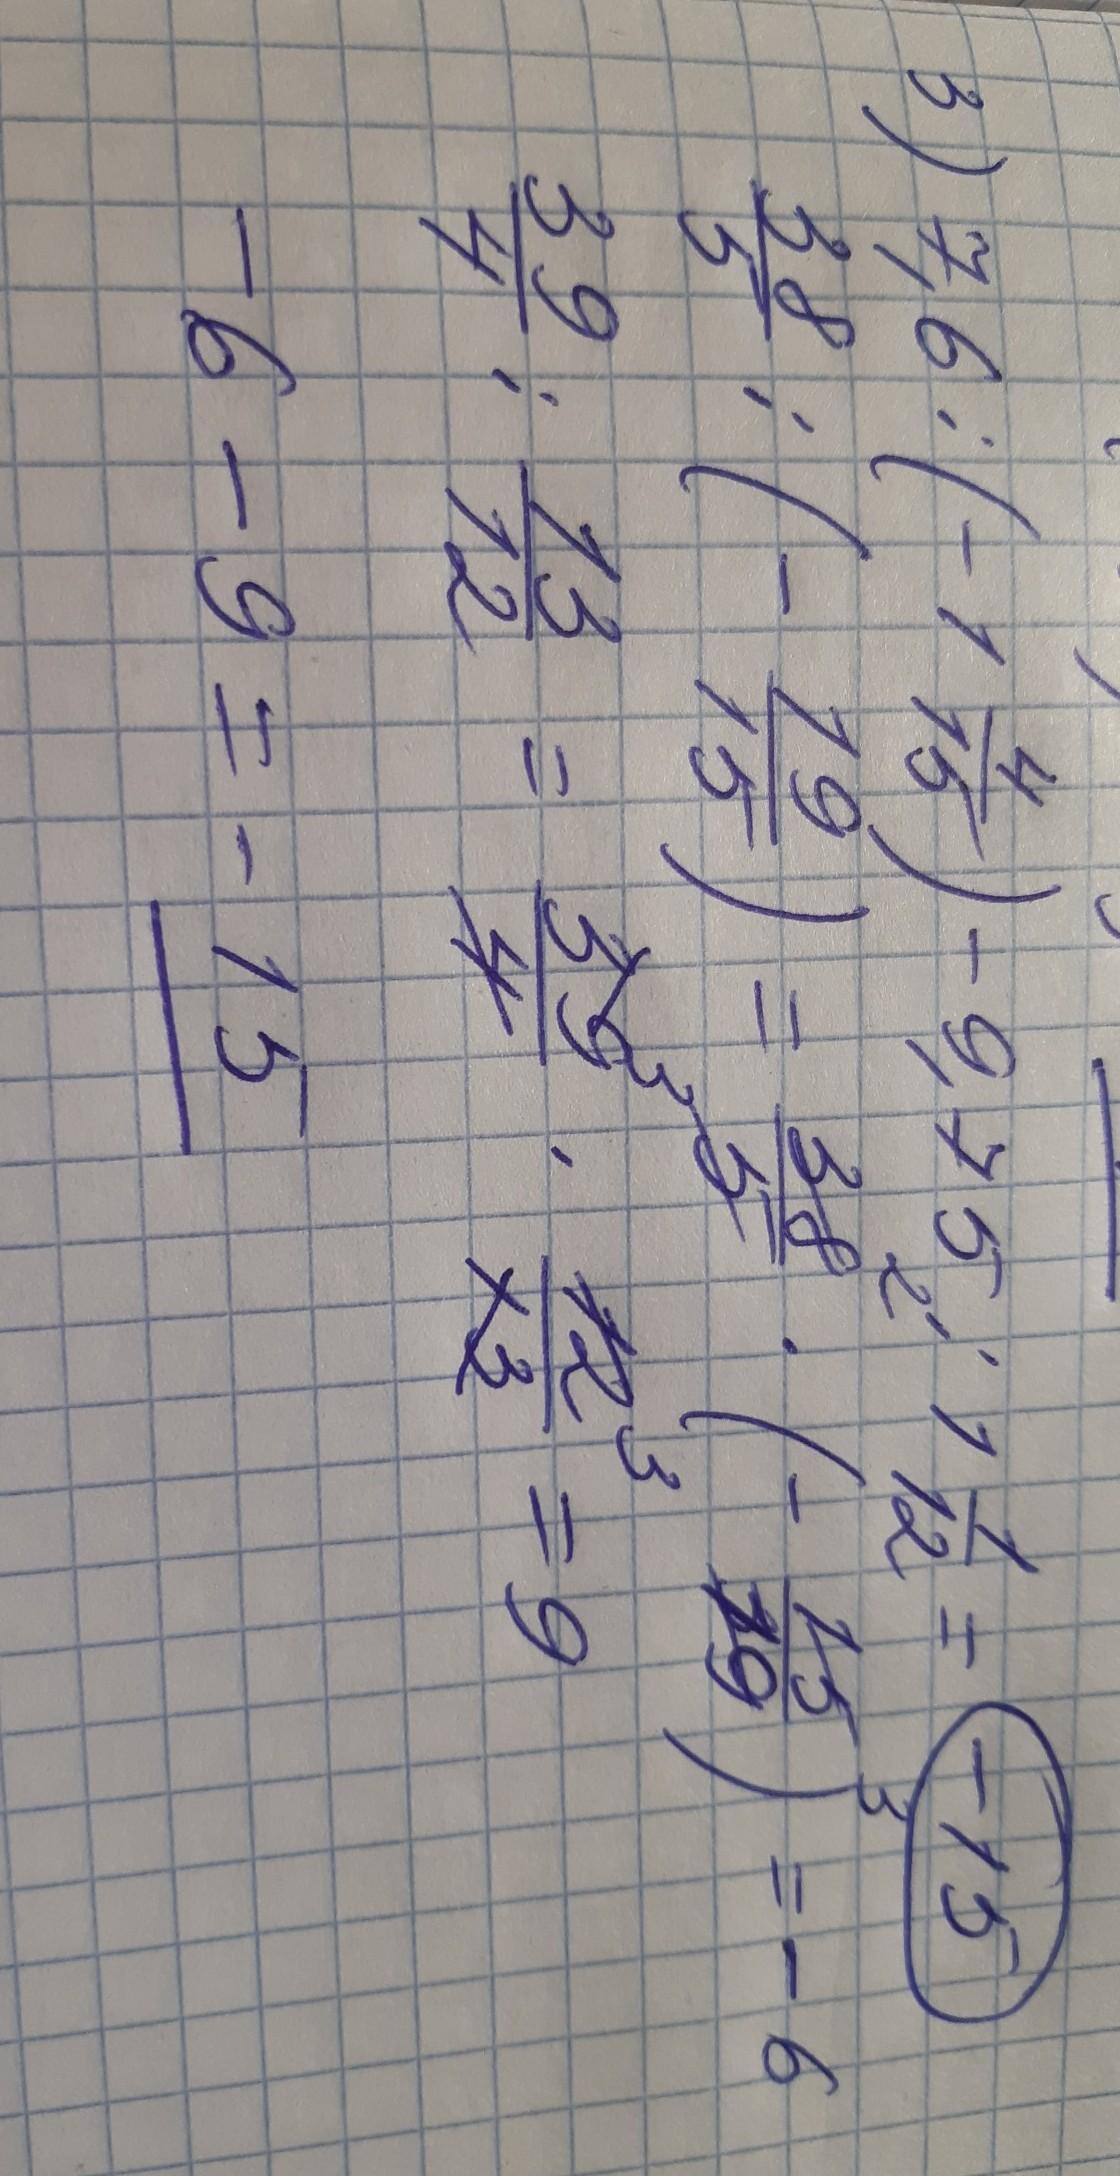 3) 7,6 : (-1 4/15) - 9,75 : 1 1/12 = -15
38/5 : (- 19/15) = 38/5 2 · (- 15/19) 3 = -6
39/4 : 13/12 = 39/4 3 · 12/13 3 = 9
-6 - 9 = -15